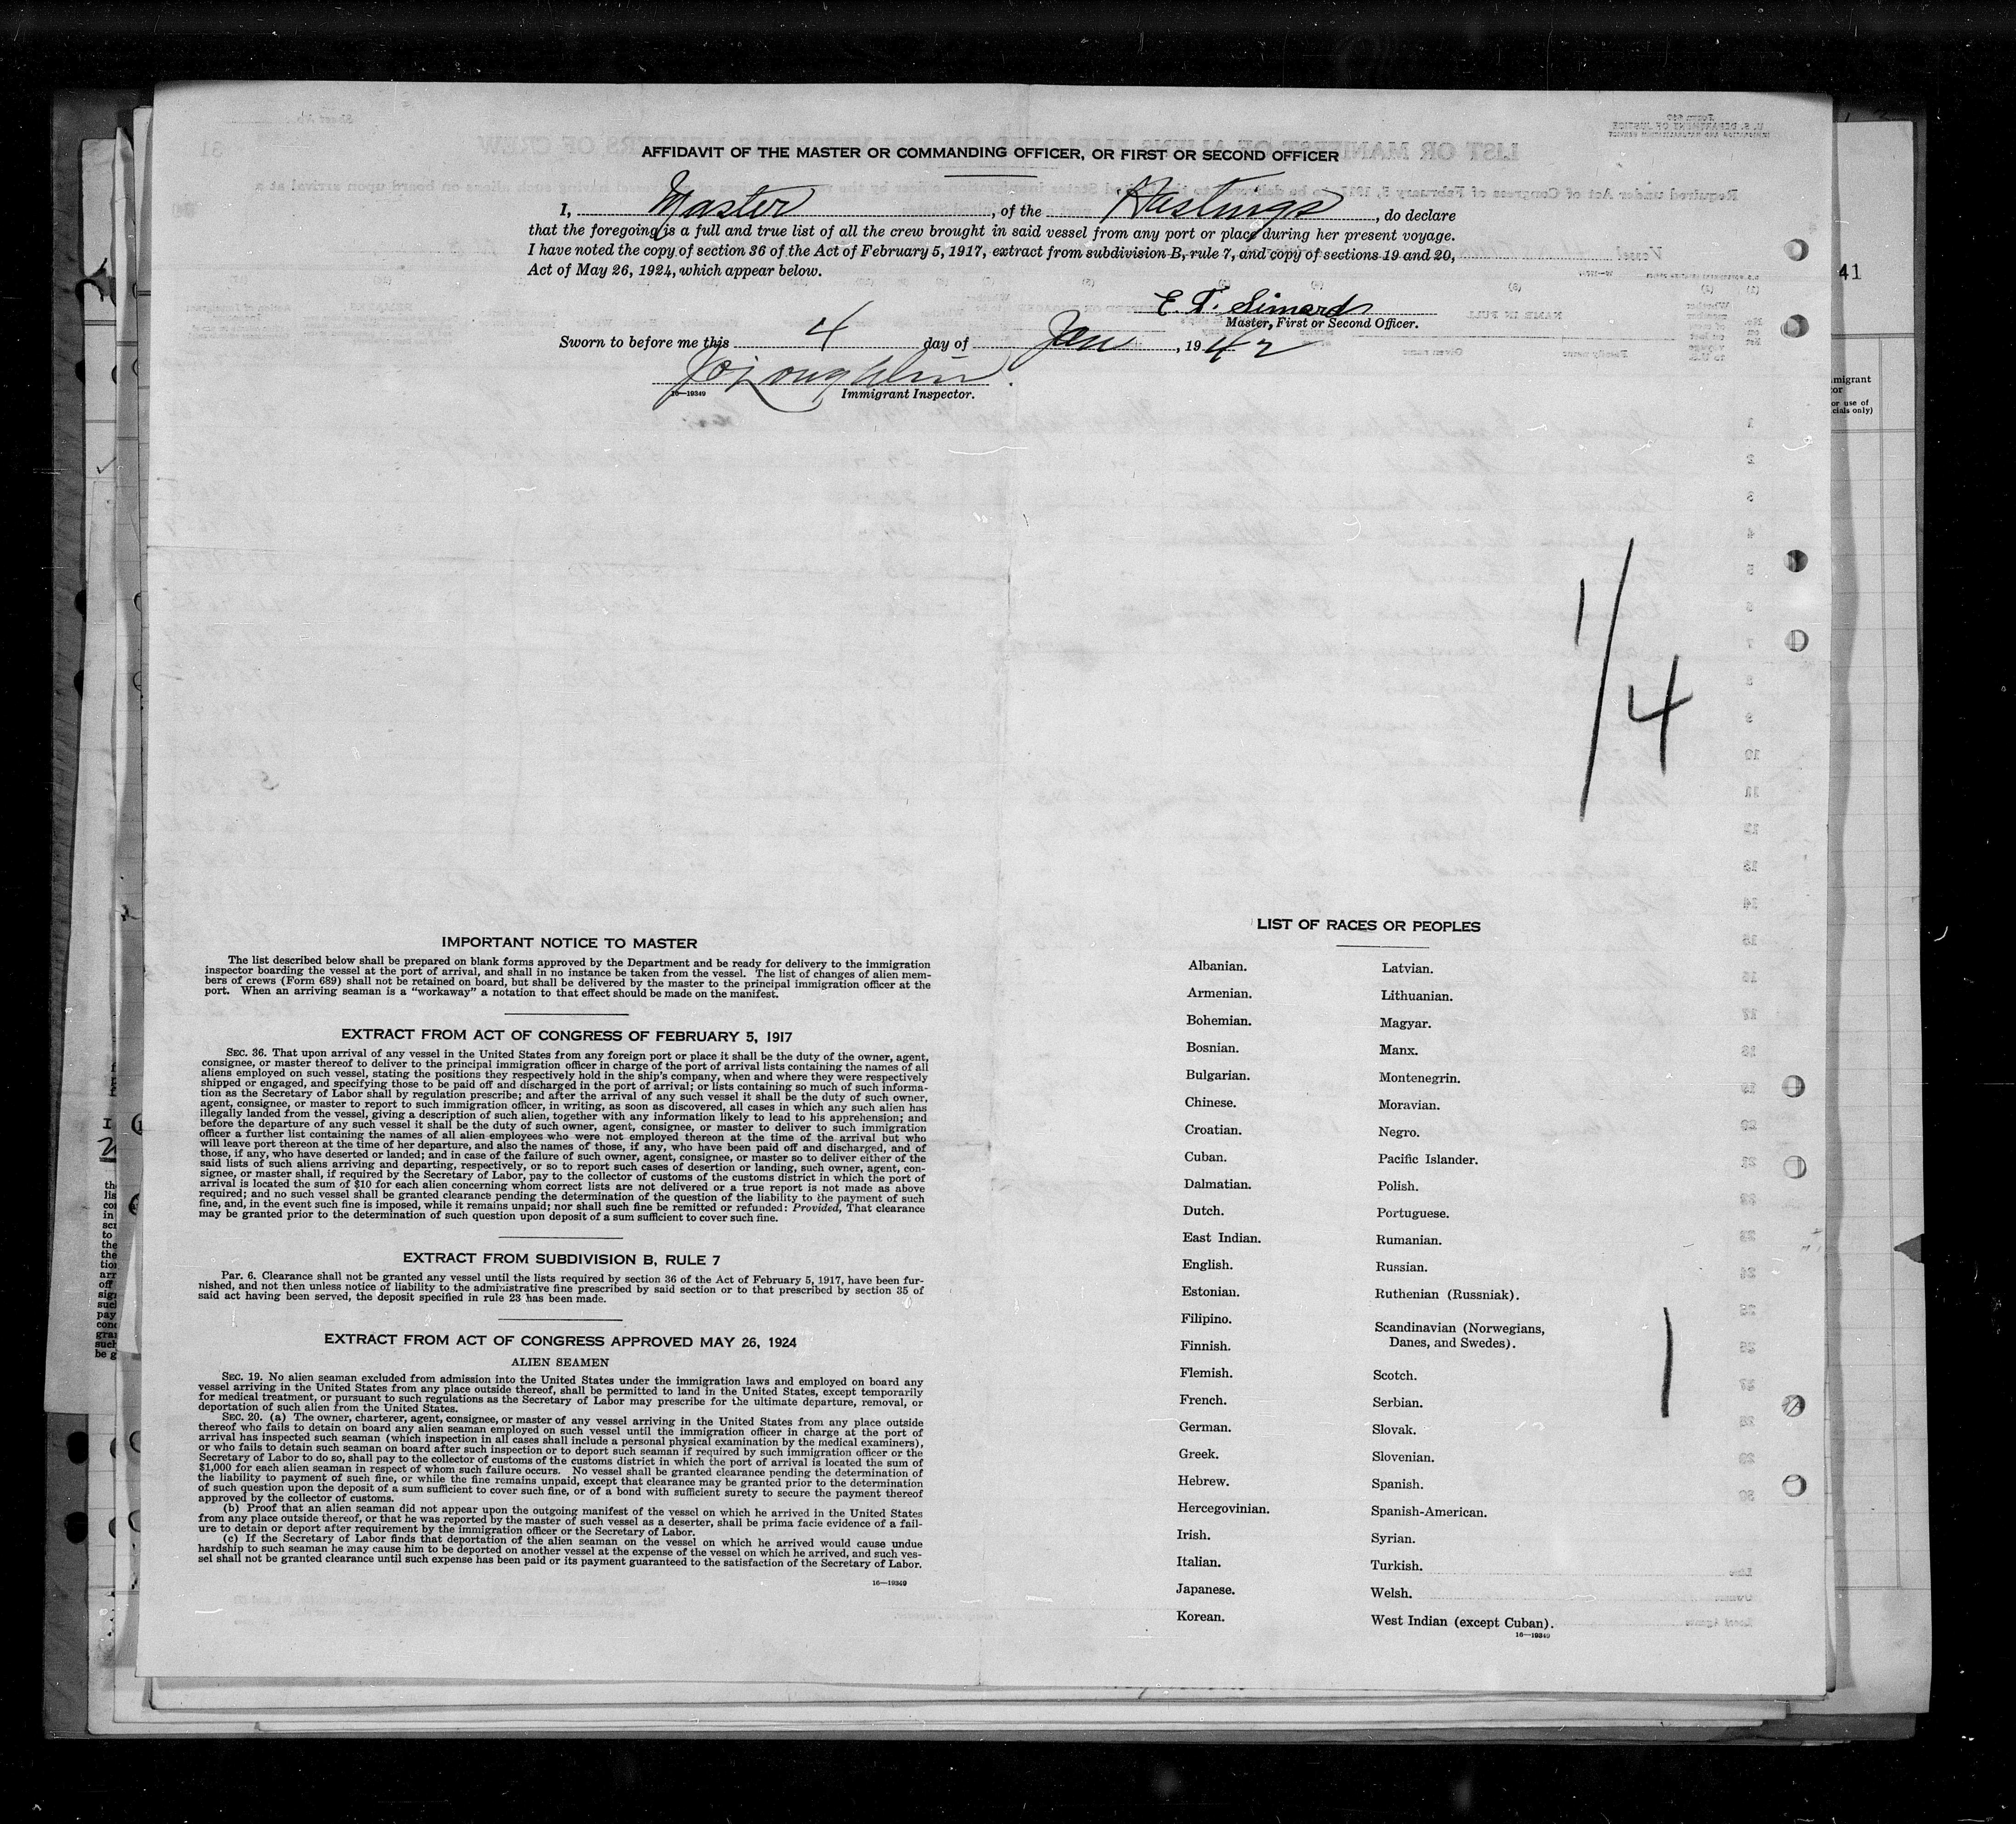 AFFIDAVIT OF THE MASTER OR COMMANDING OFFICER, OR FIRST OR SECOND OFFICER
I, Master, of the Hastings, do declare
that the foregoing is a full and true list of all the crew brought in said vessel from any port or place during her present voyage.
I have noted the copy of section 36 of the Act of February 5, 1917, extract from subdivision B, rule 7, and copy of sections 19 and 20,
Act of May 26, 1924, which appear below.
E. T. Simard
Master, First or Second Officer.
Sworn to before me this 4 day of Jan, 1942
16—19349 Immigrant Inspector.
41
1/4
IMPORTANT NOTICE TO MASTER
The list described below shall be prepared on blank forms approved by the Department and be ready for delivery to the immigration
inspector boarding the vessel at the port of arrival, and shall in no instance be taken from the vessel. The list of changes of alien mem-
bers of crews (Form 689) shall not be retained on board, but shall be delivered by the master to the principal immigration officer at the
port. When an arriving seaman is a "workaway" a notation to that effect should be made on the manifest.
EXTRACT FROM ACT OF CONGRESS OF FEBRUARY 5, 1917
SEC. 36. That upon arrival of any vessel in the United States from any foreign port or place it shall be the duty of the owner, agent,
consignee, or master thereof to deliver to the principal immigration officer in charge of the port of arrival lists containing the names of all
aliens employed on such vessel, stating the positions they respectively hold in the ship's company, when and where they were respectively
shipped or engaged, and specifying those to be paid off and discharged in the port of arrival; or lists containing so much of such informa-
tion as the Secretary of Labor shall by regulation prescribe; and after the arrival of any such vessel it shall be the duty of such owner,
agent, consignee, or master to report to such immigration officer, in writing, as soon as discovered, all cases in which any such alien has
illegally landed from the vessel, giving a description of such alien, together with any information likely to lead to his apprehension; and
before the departure of any such vessel it shall be the duty of such owner, agent, consignee, or master to deliver to such immigration
officer a further list containing the names of all alien employees who were not employed thereon at the time of the arrival but who
will leave port thereon at the time of her departure, and also the names of those, if any, who have been paid off and discharged, and of
those, if any, who have deserted or landed; and in case of the failure of such owner, agent, consignee, or master so to deliver either of the
said lists of such aliens arriving and departing, respectively, or so to report such cases of desertion or landing, such owner, agent, con-
signee, or master shall, if required by the Secretary of Labor, pay to the collector of customs of the customs district in which the port of
arrival is located the sum of $10 for each alien concerning whom correct lists are not delivered or a true report is not made as above
required; and no such vessel shall be granted clearance pending the determination of the question of the liability to the payment of such
fine, and, in the event such fine is imposed, while it remains unpaid; nor shall such fine be remitted or refunded: Provided, That clearance
may be granted prior to the determination of such question upon deposit of a sum sufficient to cover such fine.
EXTRACT FROM SUBDIVISION B, RULE 7
Par. 6. Clearance shall not be granted any vessel until the lists required by section 36 of the Act of February 5, 1917, have been fur-
nished, and not then unless notice of liability to the administrative fine prescribed by said section or to that prescribed by section 35 of
said act having been served, the deposit specified in rule 23 has been made.
EXTRACT FROM ACT OF CONGRESS APPROVED MAY 26, 1924
ALIEN SEAMEN
SEC. 19. No alien seaman excluded from admission into the United States under the immigration laws and employed on board any
vessel arriving in the United States from any place outside thereof, shall be permitted to land in the United States, except temporarily
for medical treatment, or pursuant to such regulations as the Secretary of Labor may prescribe for the ultimate departure, removal, or
deportation of such alien from the United States.
SEC. 20. (a) The owner, charterer, agent, consignee, or master of any vessel arriving in the United States from any place outside
thereof who fails to detain on board any alien seaman employed on such vessel until the immigration officer in charge at the port of
arrival has inspected such seaman (which inspection in all cases shall include a personal physical examination by the medical examiners),
or who fails to detain such seaman on board after such inspection or to deport such seaman if required by such immigration officer or the
Secretary of Labor to do so, shall pay to the collector of customs of the customs district in which the port of arrival is located the sum of
$1,000 for each alien seaman in respect of whom such failure occurs. No vessel shall be granted clearance pending the determination of
the liability to payment of such fine, or while the fine remains unpaid, except that clearance may be granted prior to the determination
of such question upon the deposit of a sum sufficient to cover such fine, or of a bond with sufficient surety to secure the payment thereof
approved by the collector of customs.
(b) Proof that an alien seaman did not appear upon the outgoing manifest of the vessel on which he arrived in the United States
from any place outside thereof, or that he was reported by the master of such vessel as a deserter, shall be prima facie evidence of a fail-
ure to detain or deport after requirement by the immigration officer or the Secretary of Labor.
(c) If the Secretary of Labor finds that deportation of the alien seaman on the vessel on which he arrived would cause undue
hardship to such seaman he may cause him to be deported on another vessel at the expense of the vessel on which he arrived, and such ves-
sel shall not be granted clearance until such expense has been paid or its payment guaranteed to the satisfaction of the Secretary of Labor.
16—19349
LIST OF RACES OR PEOPLES
Albanian.
Armenian.
Bohemian.
Bosnian.
Bulgarian.
Chinese.
Croatian.
Cuban.
Dalmatian.
Dutch.
East Indian.
English.
Estonian.
Filipino.
Finnish.
Flemish.
French.
German.
Greek.
Hebrew.
Hercegovinian.
Irish.
Italian.
Japanese.
Korean.
Latvian.
Lithuanian.
Magyar.
Manx.
Montenegrin.
Moravian.
Negro.
Pacific Islander.
Polish.
Portuguese.
Rumanian.
Russian.
Ruthenian (Russniak).
Scandinavian (Norwegians,
Danes, and Swedes).
Scotch.
Serbian.
Slovak.
Slovenian.
Spanish.
Spanish-American.
Syrian.
Turkish.
Welsh.
West Indian (except Cuban).
16—19349